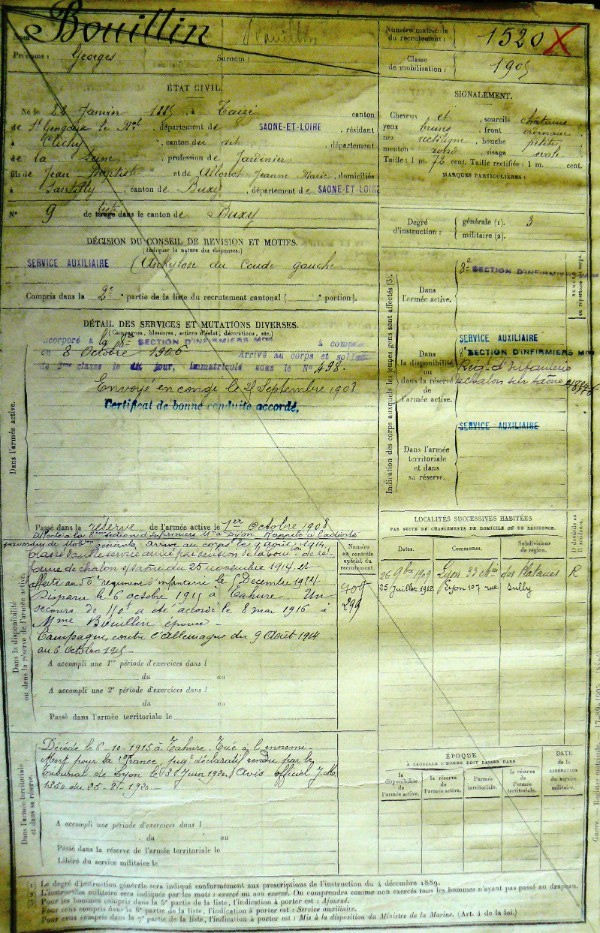 Bouillin
Numéro matricule
du recrutement :
1520
Prénoms : Georges
Surnom :
Classe
de mobilisation :
1905
ÉTAT CIVIL.
Né le 1885, à canton
de St Gengoux le Nal, département de SAONE-ET-LOIRE, résidant
à Clichy, canton du dit, département
de la Seine, profession de Jardinier
fils de Jean Baptiste et de Jeanne Marie, domiciliés
à Santilly, canton de Buxy, département de SAONE-ET-LOIRE
N° 9 de tirage dans le canton de Buxy
SIGNALEMENT.
Cheveux et sourcils châtains
yeux bruns, front ordinaire
nez rectiligne, bouche petite
menton rond, visage ovale
Taille : 1 m. 72 cent. Taille rectifiée : 1 m. cent.
MARQUES PARTICULIÈRES :
Degré
d'instruction :
générale (1). 3
militaire (2).
DÉCISION DU CONSEIL DE REVISION ET MOTIFS.
SERVICE AUXILIAIRE (Ankylose du coude gauche
Compris dans la 2e partie de la liste du recrutement cantonal ( portion).
DÉTAIL DES SERVICES ET MUTATIONS DIVERSES.
(Campagnes, blessures, actions d'éclat, décorations, etc.)
Incorporé à la 8e SECTION D'INFIRMIERS MRES à compter
du 8 octobre 1906 Arrivé au corps et soldat
de 2me classe le dit jour, immatriculé sous le N° 498.
Envoyé en congé le Septembre 1908
Certificat de bonne conduite accordé.
Dans l'armée active.
Indication des corps auxquels les jeunes gens sont affectés (3).
Dans
l'armée active.
8e SECTION D'INFIRMIERS
Dans
la disponibilité
ou
dans la réserve
de
l'armée active.
SERVICE AUXILIAIRE
8e SECTION D'INFIRMIERS MRES
Reg. d'Infanterie
Chalon sur Saône
Dans l'armée
territoriale
et dans
sa réserve.
SERVICE AUXILIAIRE
Passé dans la réserve de l'armée active le 1er Octobre 1908
Rappelé à l'activité
mobon générale, arrivé au corps le 9 août 1914.
Classé service armé par décision de la Con de ré-
forme de Chalon s/Saône du 25 novembre 1914.
Affecté au régiment d'infanterie le 5 Décembre 1914.
Disparu le 6 octobre 1915 à Tahure. Un
secours de 150f a été accordé le 8 mai 1916 à
Mme Bouillin épouse
Campagne contre l'Allemagne du 9 Août 1914
au 6 Octobre 1915
Numéro
au contrôle
spécial du
recrutement.
Dans la disponibilité
ou dans la réserve de l'armée active.
A accompli une 1re période d'exercices dans l
du au
A accompli une 2e période d'exercices dans l
du au
Passé dans l'armée territoriale le
LOCALITÉS SUCCESSIVES HABITÉES
PAR SUITE DE CHANGEMENTS DE DOMICILE OU DE RÉSIDENCE.
Dates. Communes. Subdivisions
de région.
D domicile ou
R résidence.
26 9bre 1909 Lyon 33 des Platanes R
25 juillet 1912 Lyon 107 rue Sully
Décédé le 6-10-1915 à Tahure. Tué à l'ennemi
Mort pour la France, jugt déclaratif rendu par le
Tribunal de Lyon le Juin 1920, Avis officiel
Dans l'armée territoriale
et dans sa réserve.
A accompli une période d'exercices dans l
du au
Passé dans la réserve de l'armée territoriale le
Libéré du service militaire le
ÉPOQUE
À LAQUELLE L'HOMME DOIT PASSER DANS
la
disponibilité
de
l'armée active.
la réserve
de
l'armée active.
l'armée
territoriale.
la réserve
de l'armée
territoriale.
DATE
de la
LIBÉRATION
du service
militaire.
(1) Le degré d'instruction générale sera indiqué conformément aux prescriptions de l'instruction du 4 décembre 1889.
(2) L'instruction militaire sera indiquée par les mots : exercé ou non exercé. On comprendra comme non exercés tous les hommes n'ayant pas passé au drapeau.
(3) Pour les hommes compris dans la 5e partie de la liste, l'indication à porter est : Ajourné.
Pour ceux compris dans la 6e partie de la liste, l'indication à porter est : Service auxiliaire.
Pour ceux compris dans la 7e partie de la liste, l'indication à porter est : Mis à la disposition du Ministre de la Marine. (Art. 4 de la loi.)